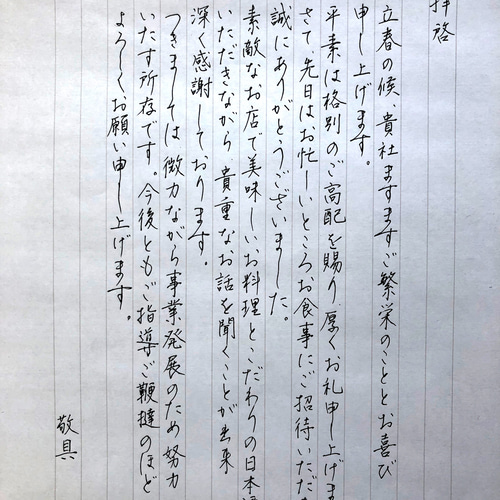 拝啓
立春の候、貴社ますますご繁栄のこととお喜び
申し上げます。
平素は格別のご高配を賜り、厚くお礼申し上げま
さて、先日はお忙しいところお食事にご招待いただ
誠にありがとうございました。
素敵なお店で美味しいお料理とこだわりの日本
いただきながら、貴重なお話を聞くことが出来
深く感謝しております。
つきましては微力ながら事業発展のため努力
いたす所存です。今後ともご指導ご鞭撻のほど
よろしくお願い申し上げます。
敬具